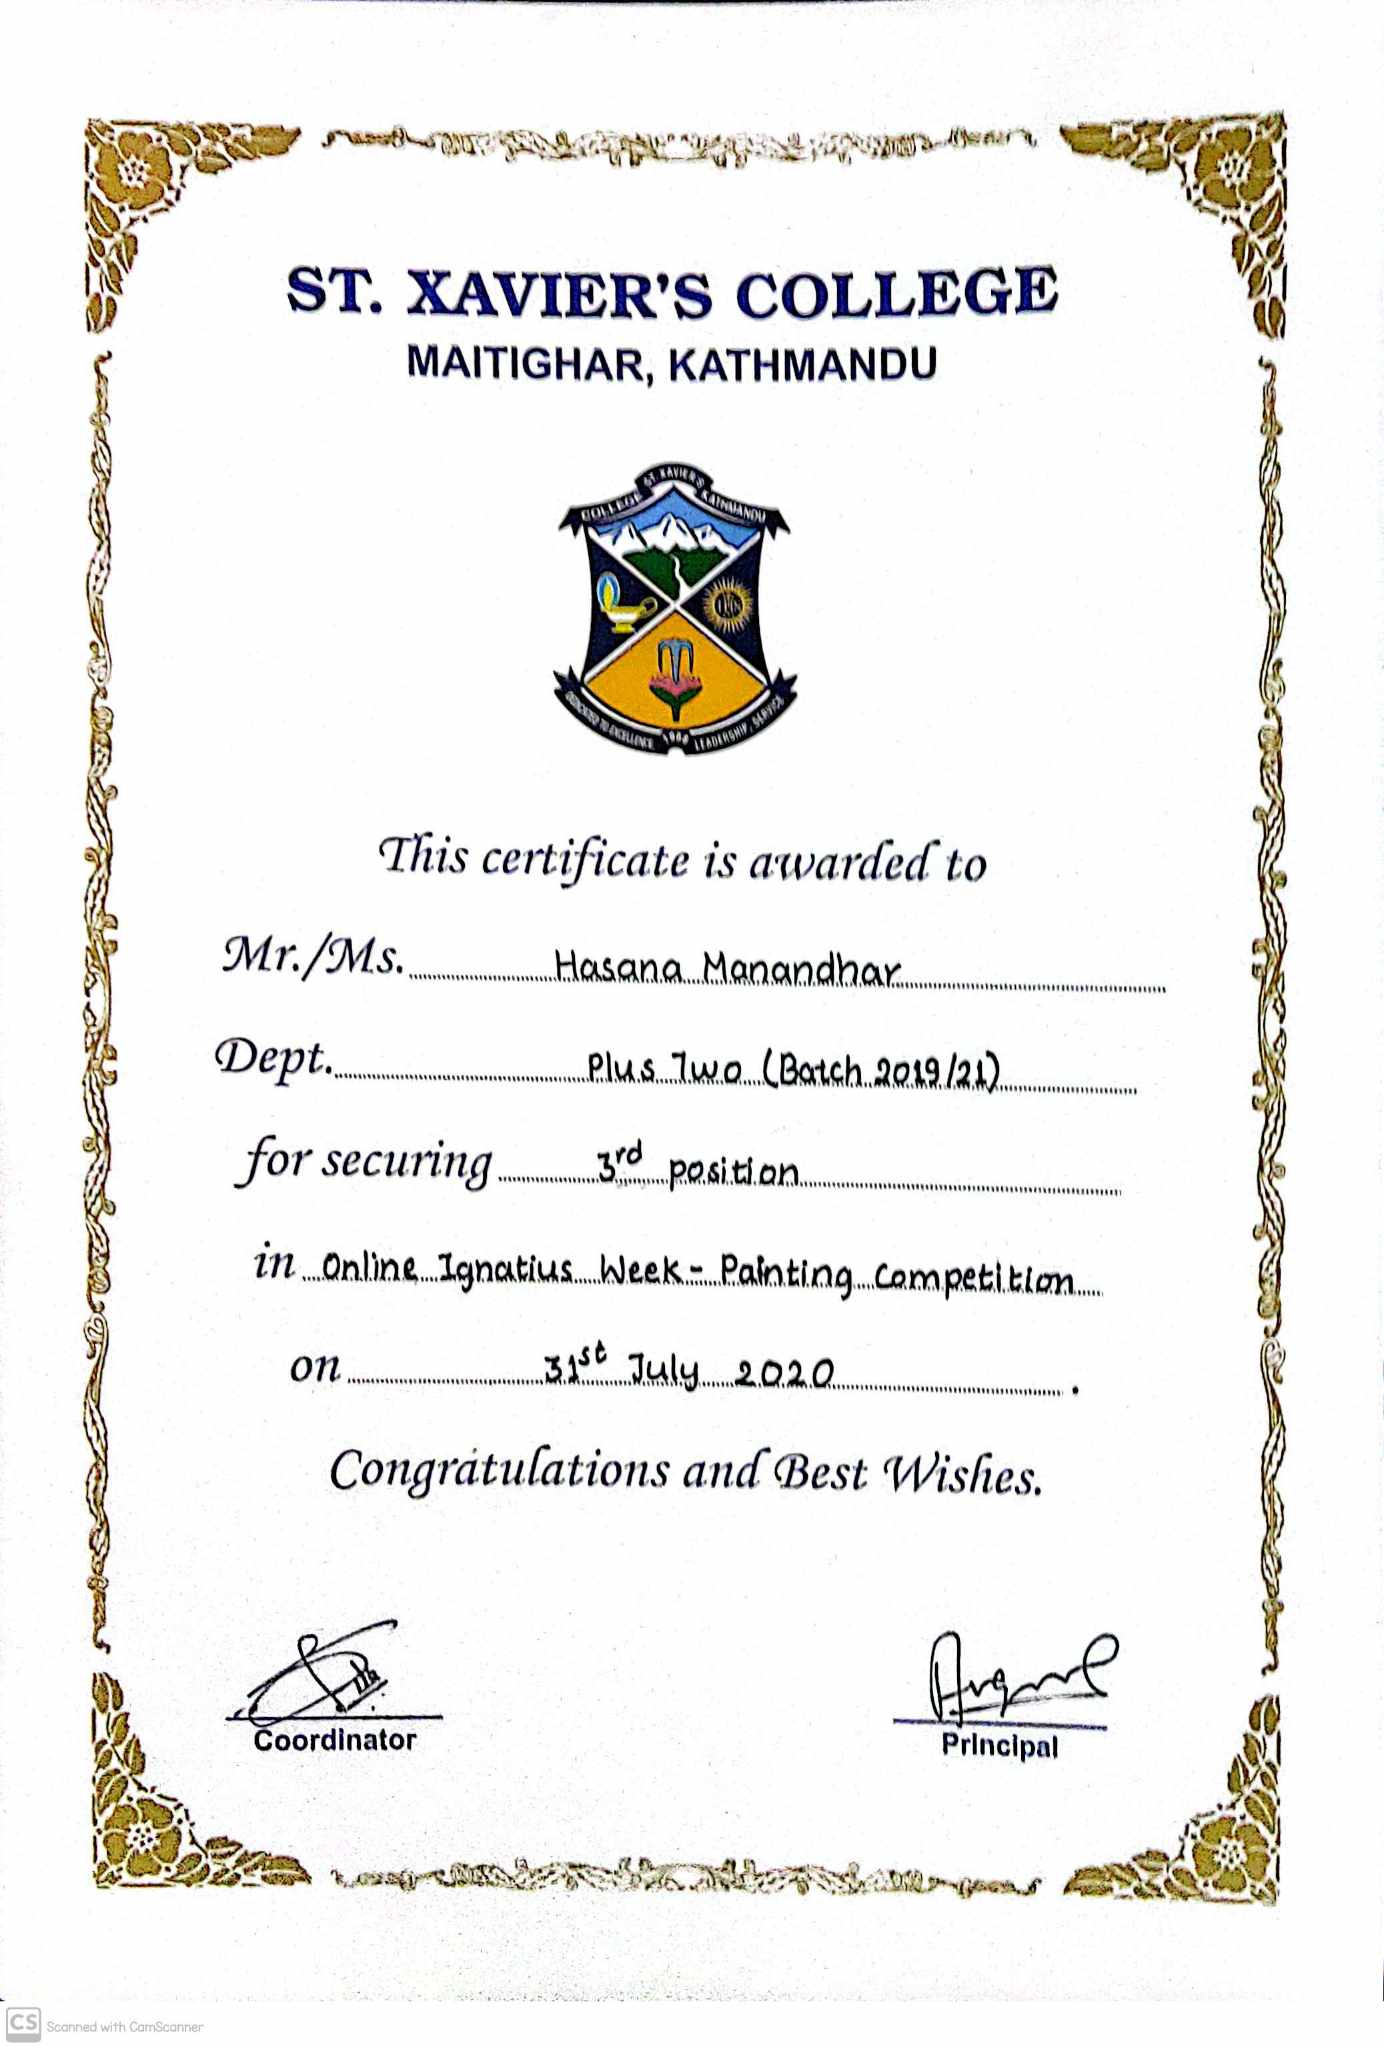 ST. XAVIER'S COLLEGE
MAITIGHAR, KATHMANDU
COLLEGE ST. XAVIER'S KATHMANDU
DEDICATED TO EXCELLENCE LEADERSHIP, SERVICE
This certificate is awarded to
Mr./Ms. Hasana Manandhar
Dept. Plus Two (Batch 2019/21)
for securing 3rd position
in Online Ignatius Week - Painting Competition
on 31st July 2020.
Congratulations and Best Wishes.
Coordinator
Principal
CS Scanned with CamScanner